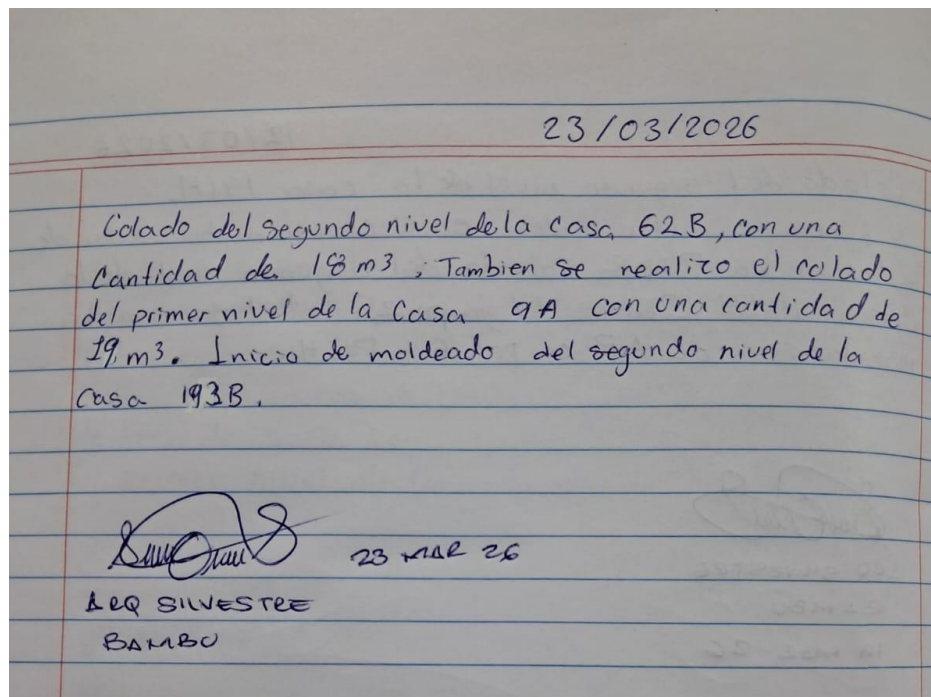 23/03/2026
Colado del segundo nivel de la casa 62B, con una
Cantidad de 18 m3, Tambien se realizo el colado
del primer nivel de la Casa 9A con una cantidad de
19 m3. Inicio de moldeado del segundo nivel de la
Casa 193B.
23 MAR 26
ARQ SILVESTRE
BAMBU